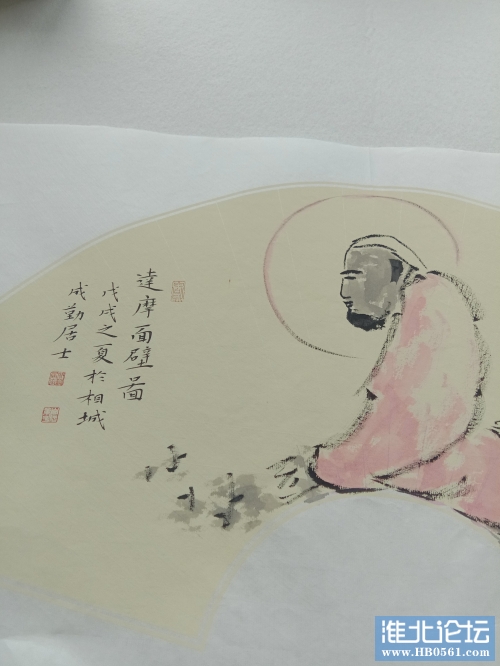 達摩面壁啚
戊戌之夏於相城
成勤居士
淮北论坛
www.HB0561.com